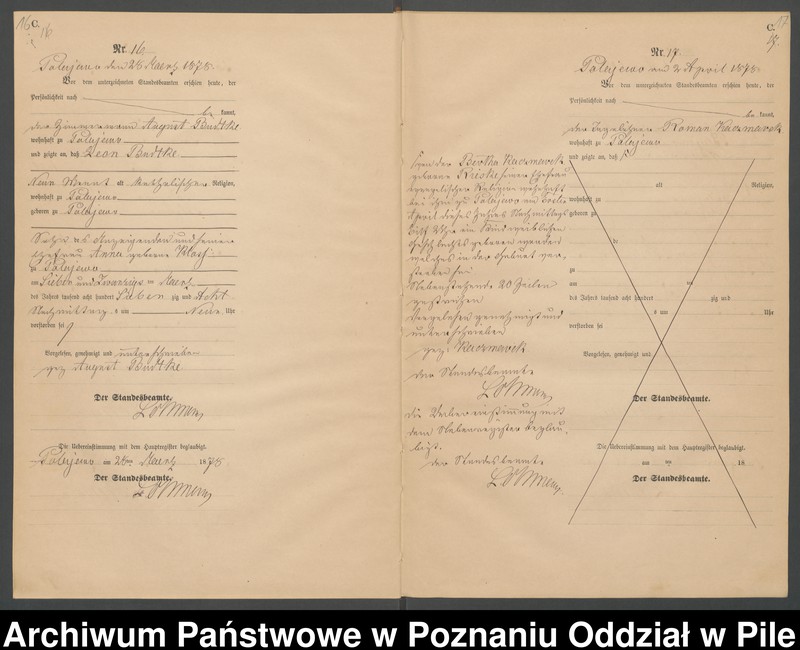 16
C.
16
Nr. 16
Palejewo den 28 Maerz 1878
Vor dem unterzeichneten Standesbeamten erschien heute, der
Persönlichkeit nach
be kannt,
der Zimmermann August Budtke
wohnhaft zu Palejewo
und zeigte an, daß Leon Budtke
Neun Monat alt Katholischer Religion,
wohnhaft zu Palejewo
geboren zu Palejewo
Sohn des Anzeigenden und seiner
Ehefrau Anna geborene
zu Palejewo
am Sieben und Zwanzigsten Maerz
des Jahres tausend acht hundert Sieben zig und Acht
Nachmittags um Neun Uhr
verstorben sei
Vorgelesen, genehmigt und unterschrieben
gez August Budtke
Der Standesbeamte.
Die Uebereinstimmung mit dem Hauptregister beglaubigt.
Palejewo am 28ten Maerz 1878
Der Standesbeamte.
17
C.
17.
Nr. 17
Palejewo am 2 April 1878
Vor dem unterzeichneten Standesbeamten erschien heute, der
Persönlichkeit nach
be kannt,
der Tagelöhner Roman Kaczmarek
wohnhaft zu Palejewo
und zeigte an, daß
von der Bertha Kaczmarek
geborene seiner Ehefrau
evangelischer Religion wohnhaft
bei ihm zu Palejewo am
April dieses Jahres Nachmittags
Uhr ein Kind weiblichen
Geschlechts geboren worden
welches in der Geburt ver-
storben sei
Nebenstehende 20 Zeilen
gestrichen
Vorgelesen genehmigt und
unterschrieben
gez. Kaczmarek
der Standesbeamte
Die Uebereinstimmung mit
dem Nebenregister beglau-
bigt.
der Standesbeamte
alt Religion,
wohnhaft zu
geboren zu
zu
am
des Jahres tausend acht hundert zig und
um Uhr
verstorben sei
Vorgelesen, genehmigt und
Der Standesbeamte.
Die Uebereinstimmung mit dem Hauptregister beglaubigt.
am 18
Der Standesbeamte.
Archiwum Państwowe w Poznaniu Oddział w Pile